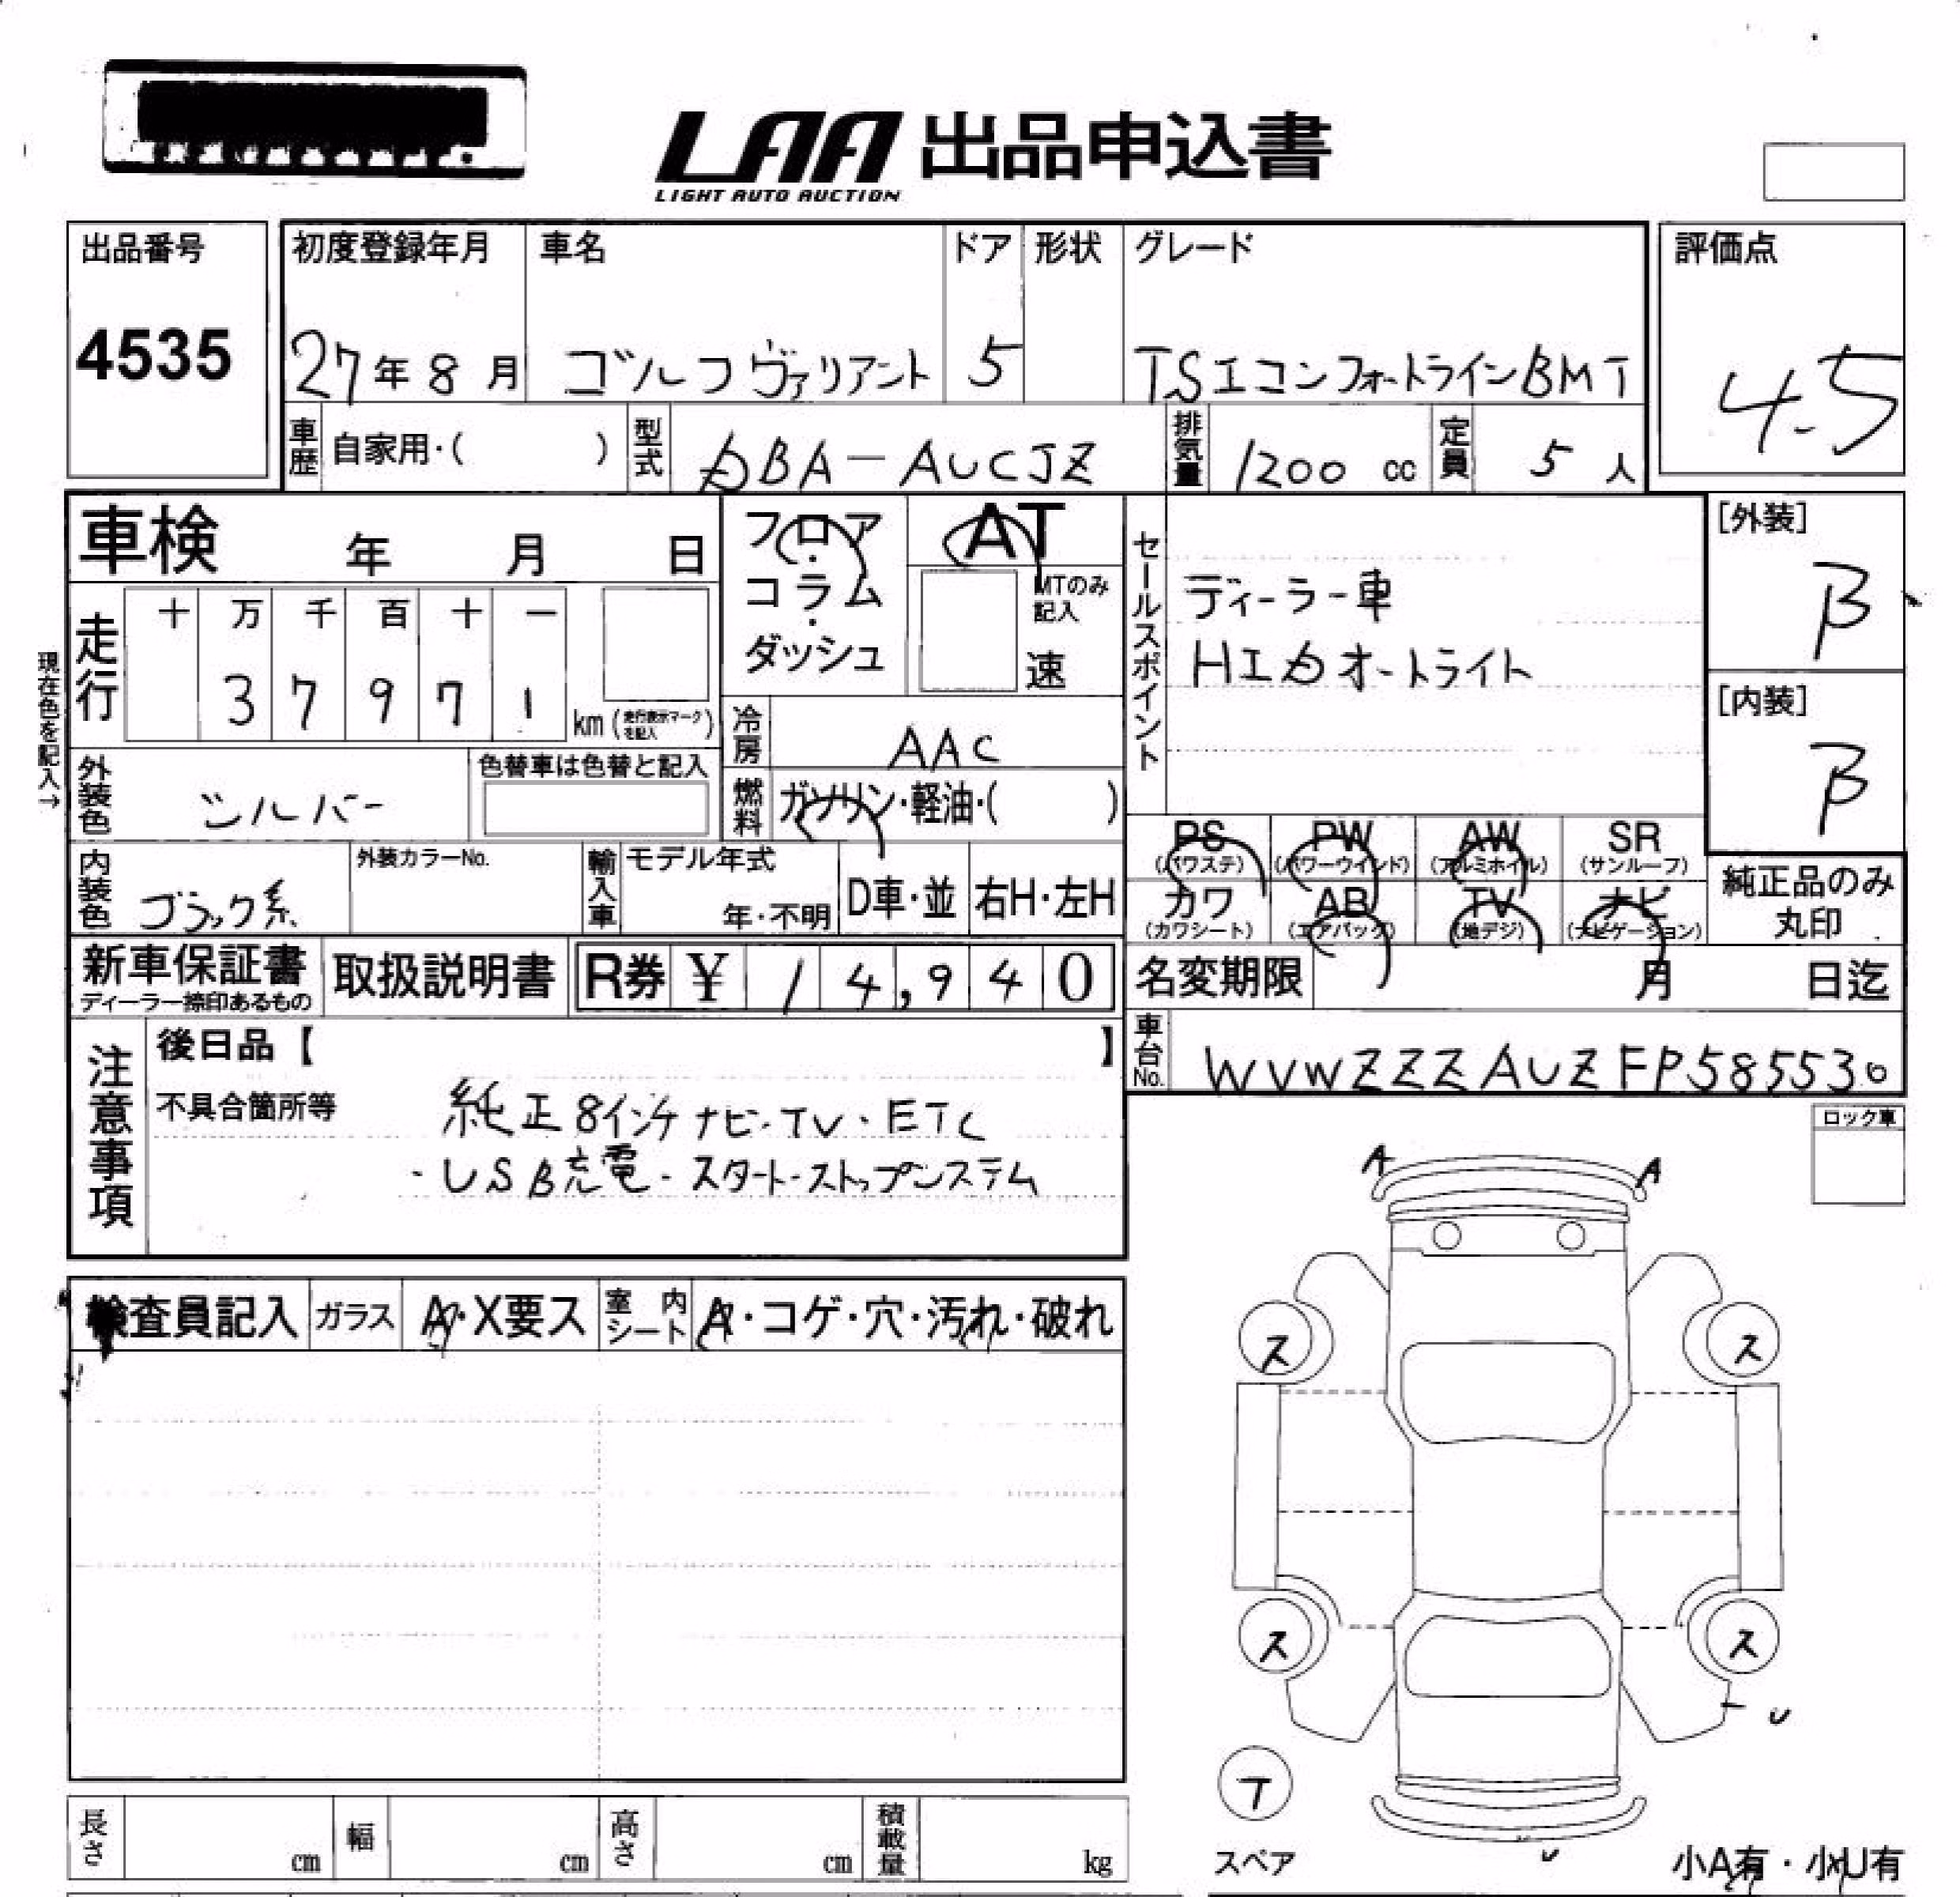 LAA 出品申込書
LIGHT AUTO AUCTION
出品番号
4535
初度登録年月
27年8月
車名
ゴルフヴァリアント
ドア
5
形状
グレード
TSIコンフォートラインBMT
評価点
4.5
車歴
自家用・( )
型式
DBA-AUCJZ
排気量
1200 cc
定員
5 人
車検 年 月 日
フロア・コラム・ダッシュ
AT
MTのみ記入
速
セールスポイント
ディーラー車
HIDオートライト
[外装]
B
[内装]
B
現在色を記入→
走行
十 万 千 百 十 一
3 7 9 7 1
km (走行表示マークを記入)
冷房
AAC
外装色
シルバー
色替車は色替と記入
燃料
ガソリン・軽油・( )
PS (パワステ)
PW (パワーウインド)
AW (アルミホイル)
SR (サンルーフ)
カワ (カワシート)
AB (エアバック)
TV (地デジ)
ナビ (ナビゲーション)
純正品のみ丸印
内装色
ブラック系
外装カラーNo.
輸入車
モデル年式
年・不明
D車・並
右H・左H
新車保証書
ディーラー捺印あるもの
取扱説明書
R券 ¥ 14,940
名変期限 月 日迄
車台No.
WVWZZZAUZFP585530
注意事項
後日品【 】
不具合箇所等
純正8インチナビ・TV・ETC
・USB充電・スタート・ストップシステム
ロック車
A A
検査員記入
ガラス
A・X要ス
室内シート
A・コゲ・穴・汚れ・破れ
ス ス
ス ス
U
T
スペア
U
小A有・小U有
長さ cm
幅 cm
高さ cm
積載量 kg